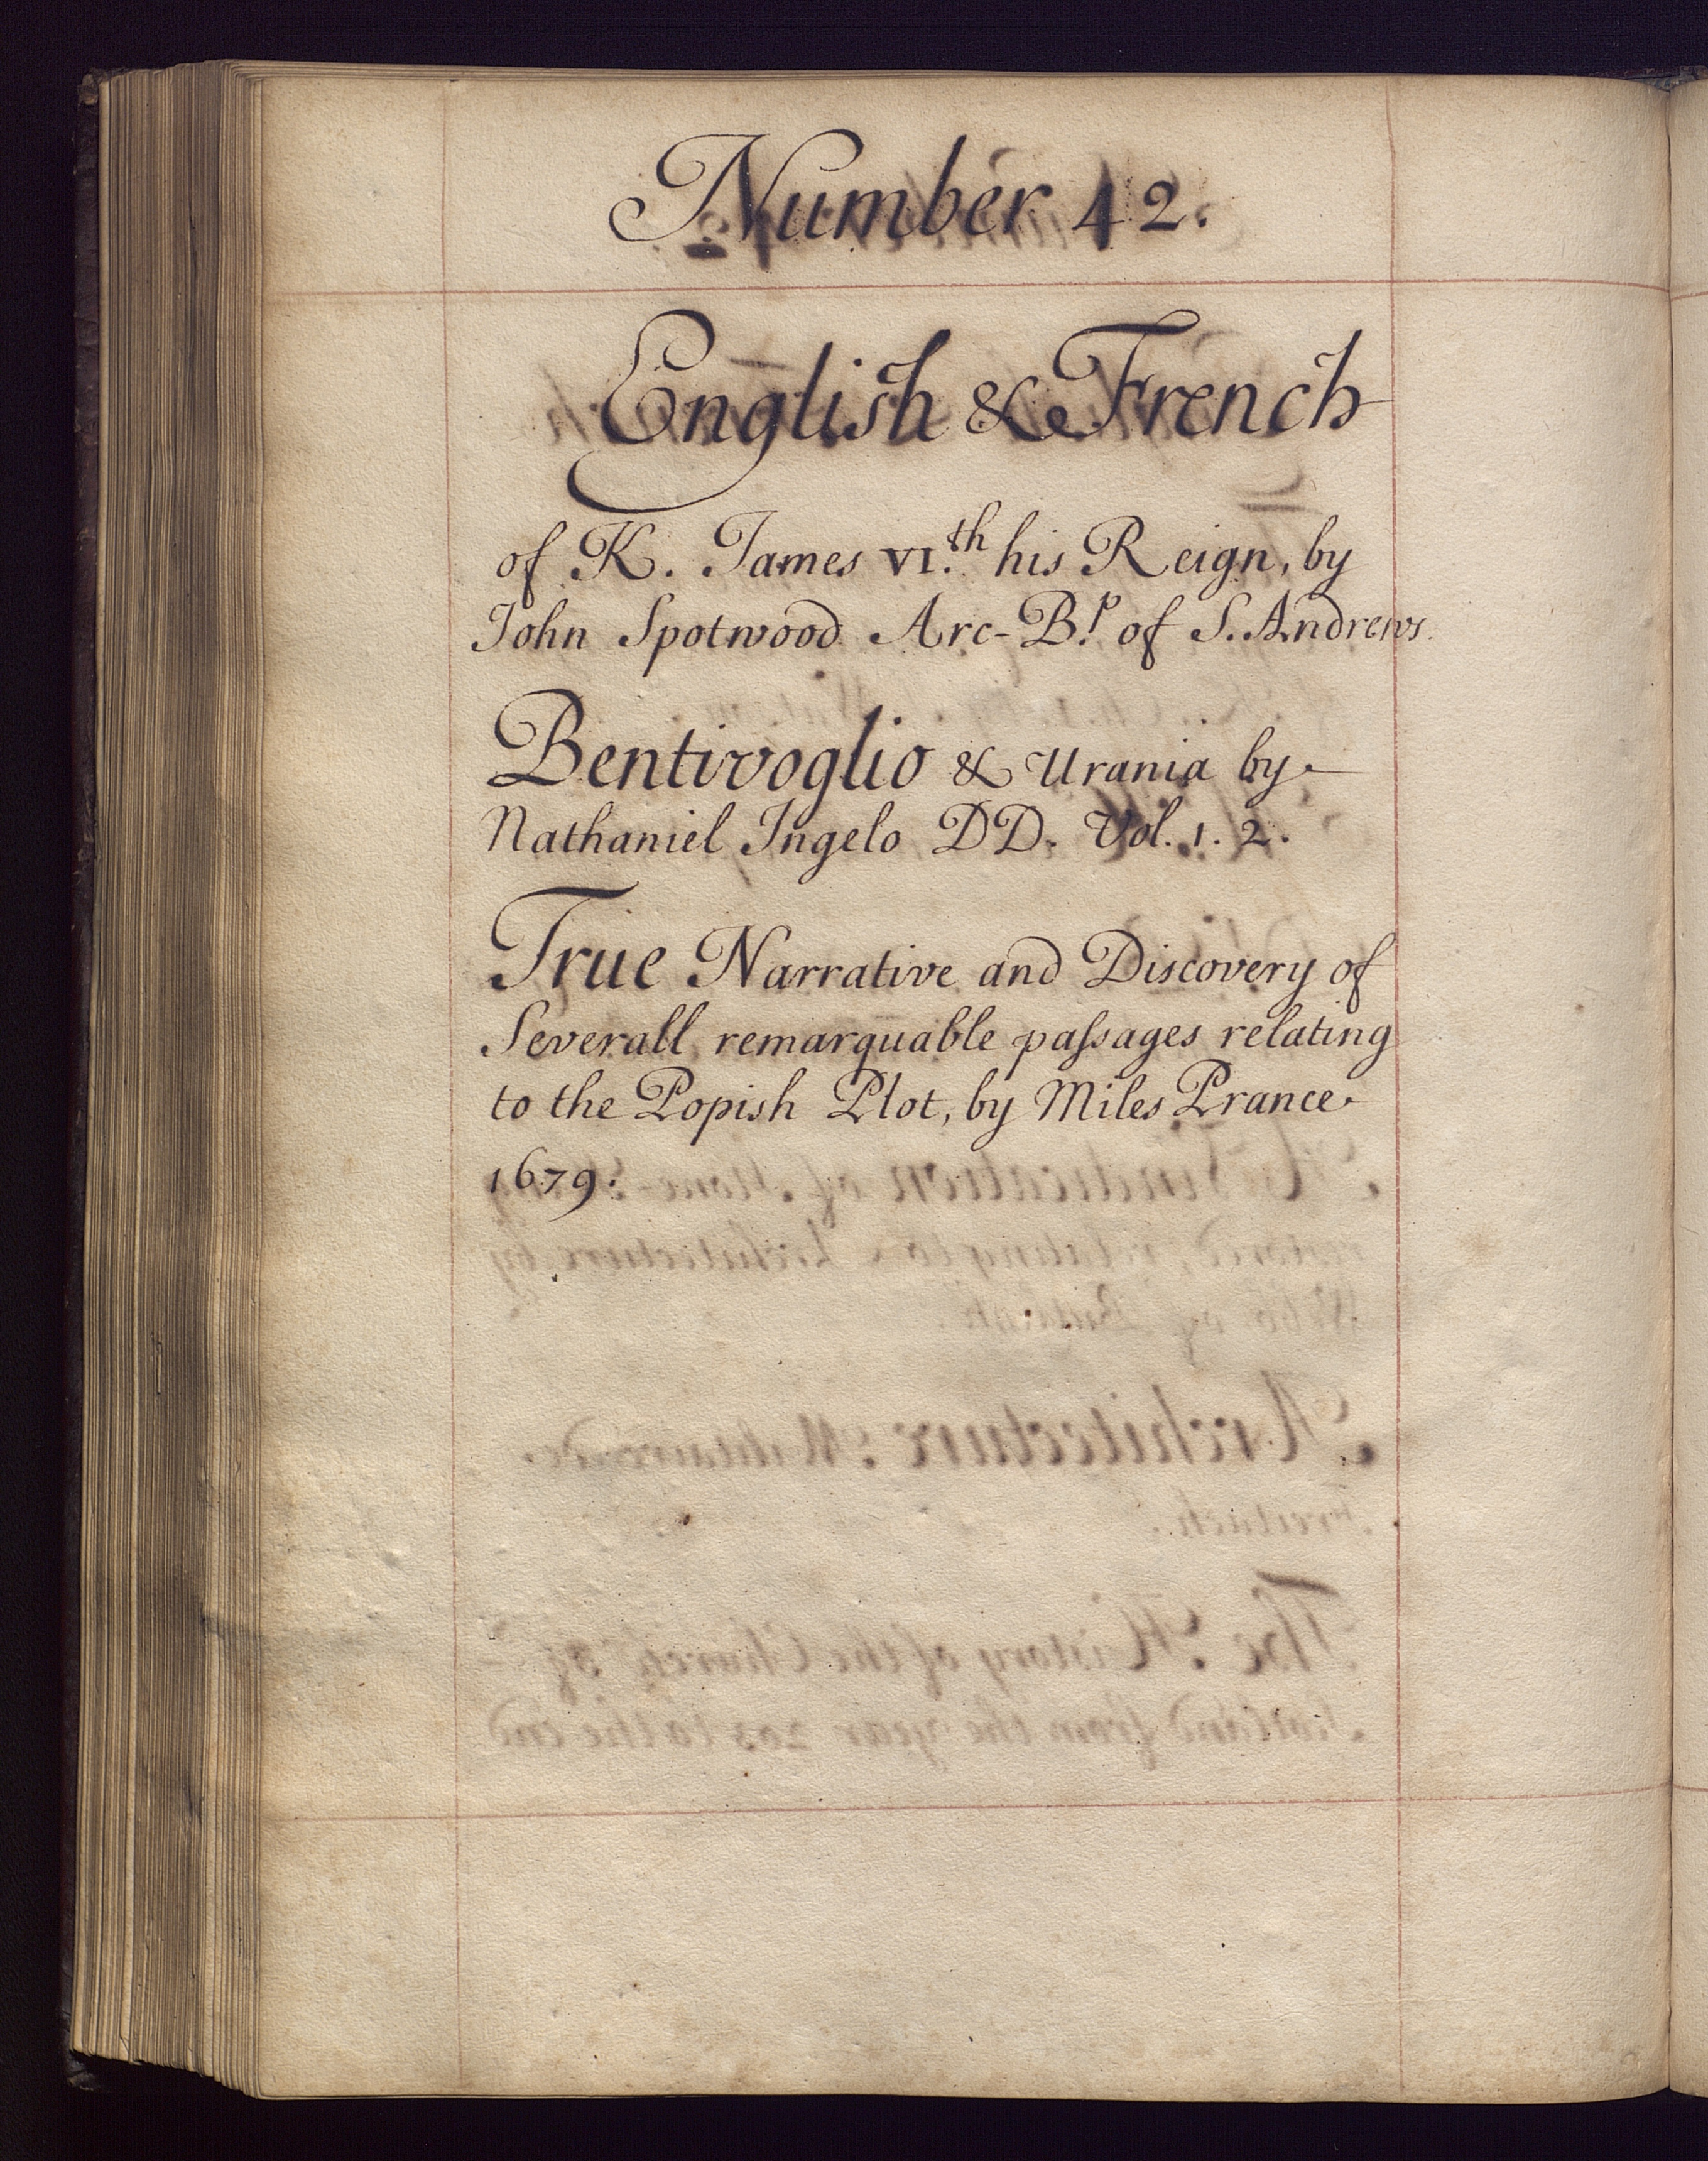 Number 42.
English & French
of K. James VI.th his Reign, by
John Spotwood Arc-B.p of S. Andrews.
Bentivoglio & Urania by
Nathaniel Ingelo DD. Vol. 1. 2.
True Narrative and Discovery of
Severall remarquable paſsages relating
to the Popish Plot, by Miles Prance
1679.